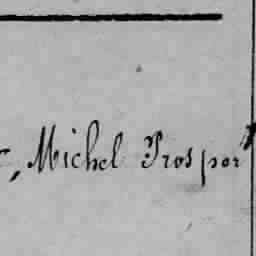 , Michel Prosper